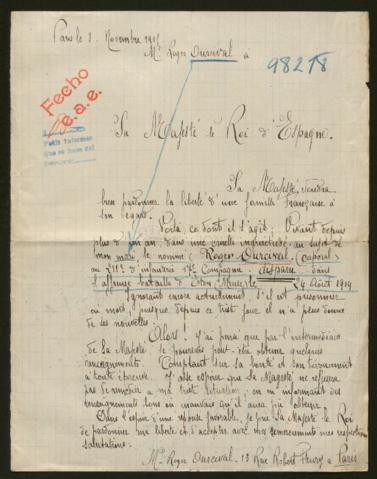 Paris le 8. Novembre 1915
Mme Roger Ourceval à
98278
Fecho
e.a.e.
Sa Majesté le Roi d'Espagne.
Sa Majesté, voudra
bien pardonner la liberté d'une famille Française à
son égard.
Voilà ce dont il s'agit. Vivant depuis
plus d'un an dans une cruelle inquiétude, au sujet de
mon mari le nommé (Roger Ourceval, (caporal)
au 211e d'infanterie 17e Compagnie, disparu dans
24 Août 1914
Ignorant encore actuellement s'il est prisonnier
ou mort, puisque depuis ce triste jour il n'a plus donné
de ses nouvelles.
Alors j'ai pensé que par l'intermédiaire
de Sa Majesté je pourrais peut-être obtenir quelques
renseignements. Comptant sur sa bonté et son dévouement
à toute épreuve. J'ose espérer que Sa Majesté ne refusera
pas de remédier à ma triste situation, en m'informant des
renseignements bons ou mauvais qu'il aura pu obtenir.
Dans l'espoir d'une réponse favorable, je prie Sa Majesté le Roi
de pardonner ma liberté et d'accepter avec mes remerciements mes respectueuses
salutations.
Mme Roger Ourceval, 13 Rue Robert Fleury, à Paris